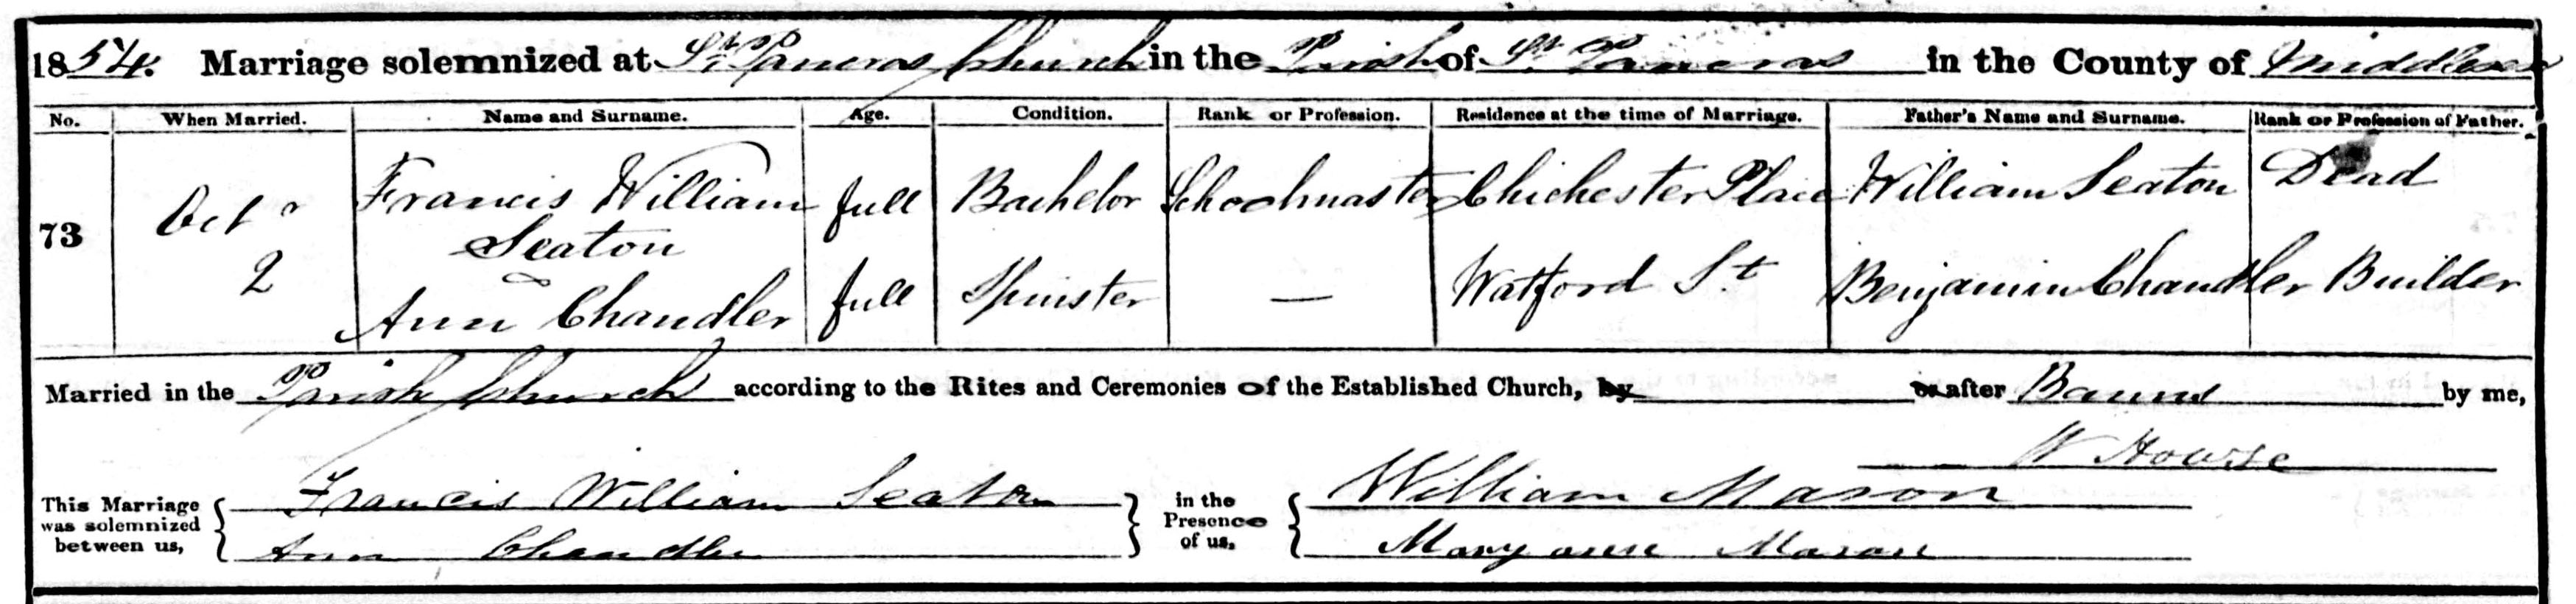 1854. Marriage solemnized at St. Pancras Church in the Parish of St. Pancras in the County of Middlesex
No. When Married. Name and Surname. Age. Condition. Rank or Profession. Residence at the time of Marriage. Father's Name and Surname. Rank or Profession of Father.
73 Octr 2 Francis William Seaton full Bachelor Schoolmaster Chichester Place William Seaton Dead
Ann Chandler full Spinster — Watford St Benjamin Chandler Builder
Married in the Parish Church according to the Rites and Ceremonies of the Established Church, by or after Banns by me,
W Howse
This Marriage was solemnized between us, { Francis William Seaton } in the Presence of us, { William Mason
Ann Chandler Mary ann Mason